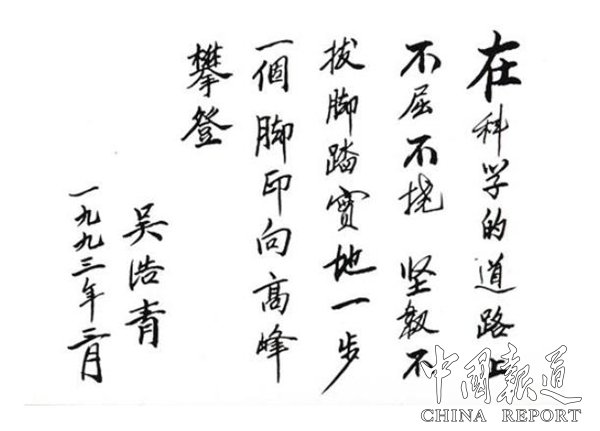 在科学的道路上
不屈不挠 坚毅不
拔脚踏實地一步
一個脚印向高峰
攀登
吴浩青
一九九三年二月
中国報道
CHINA REPORT